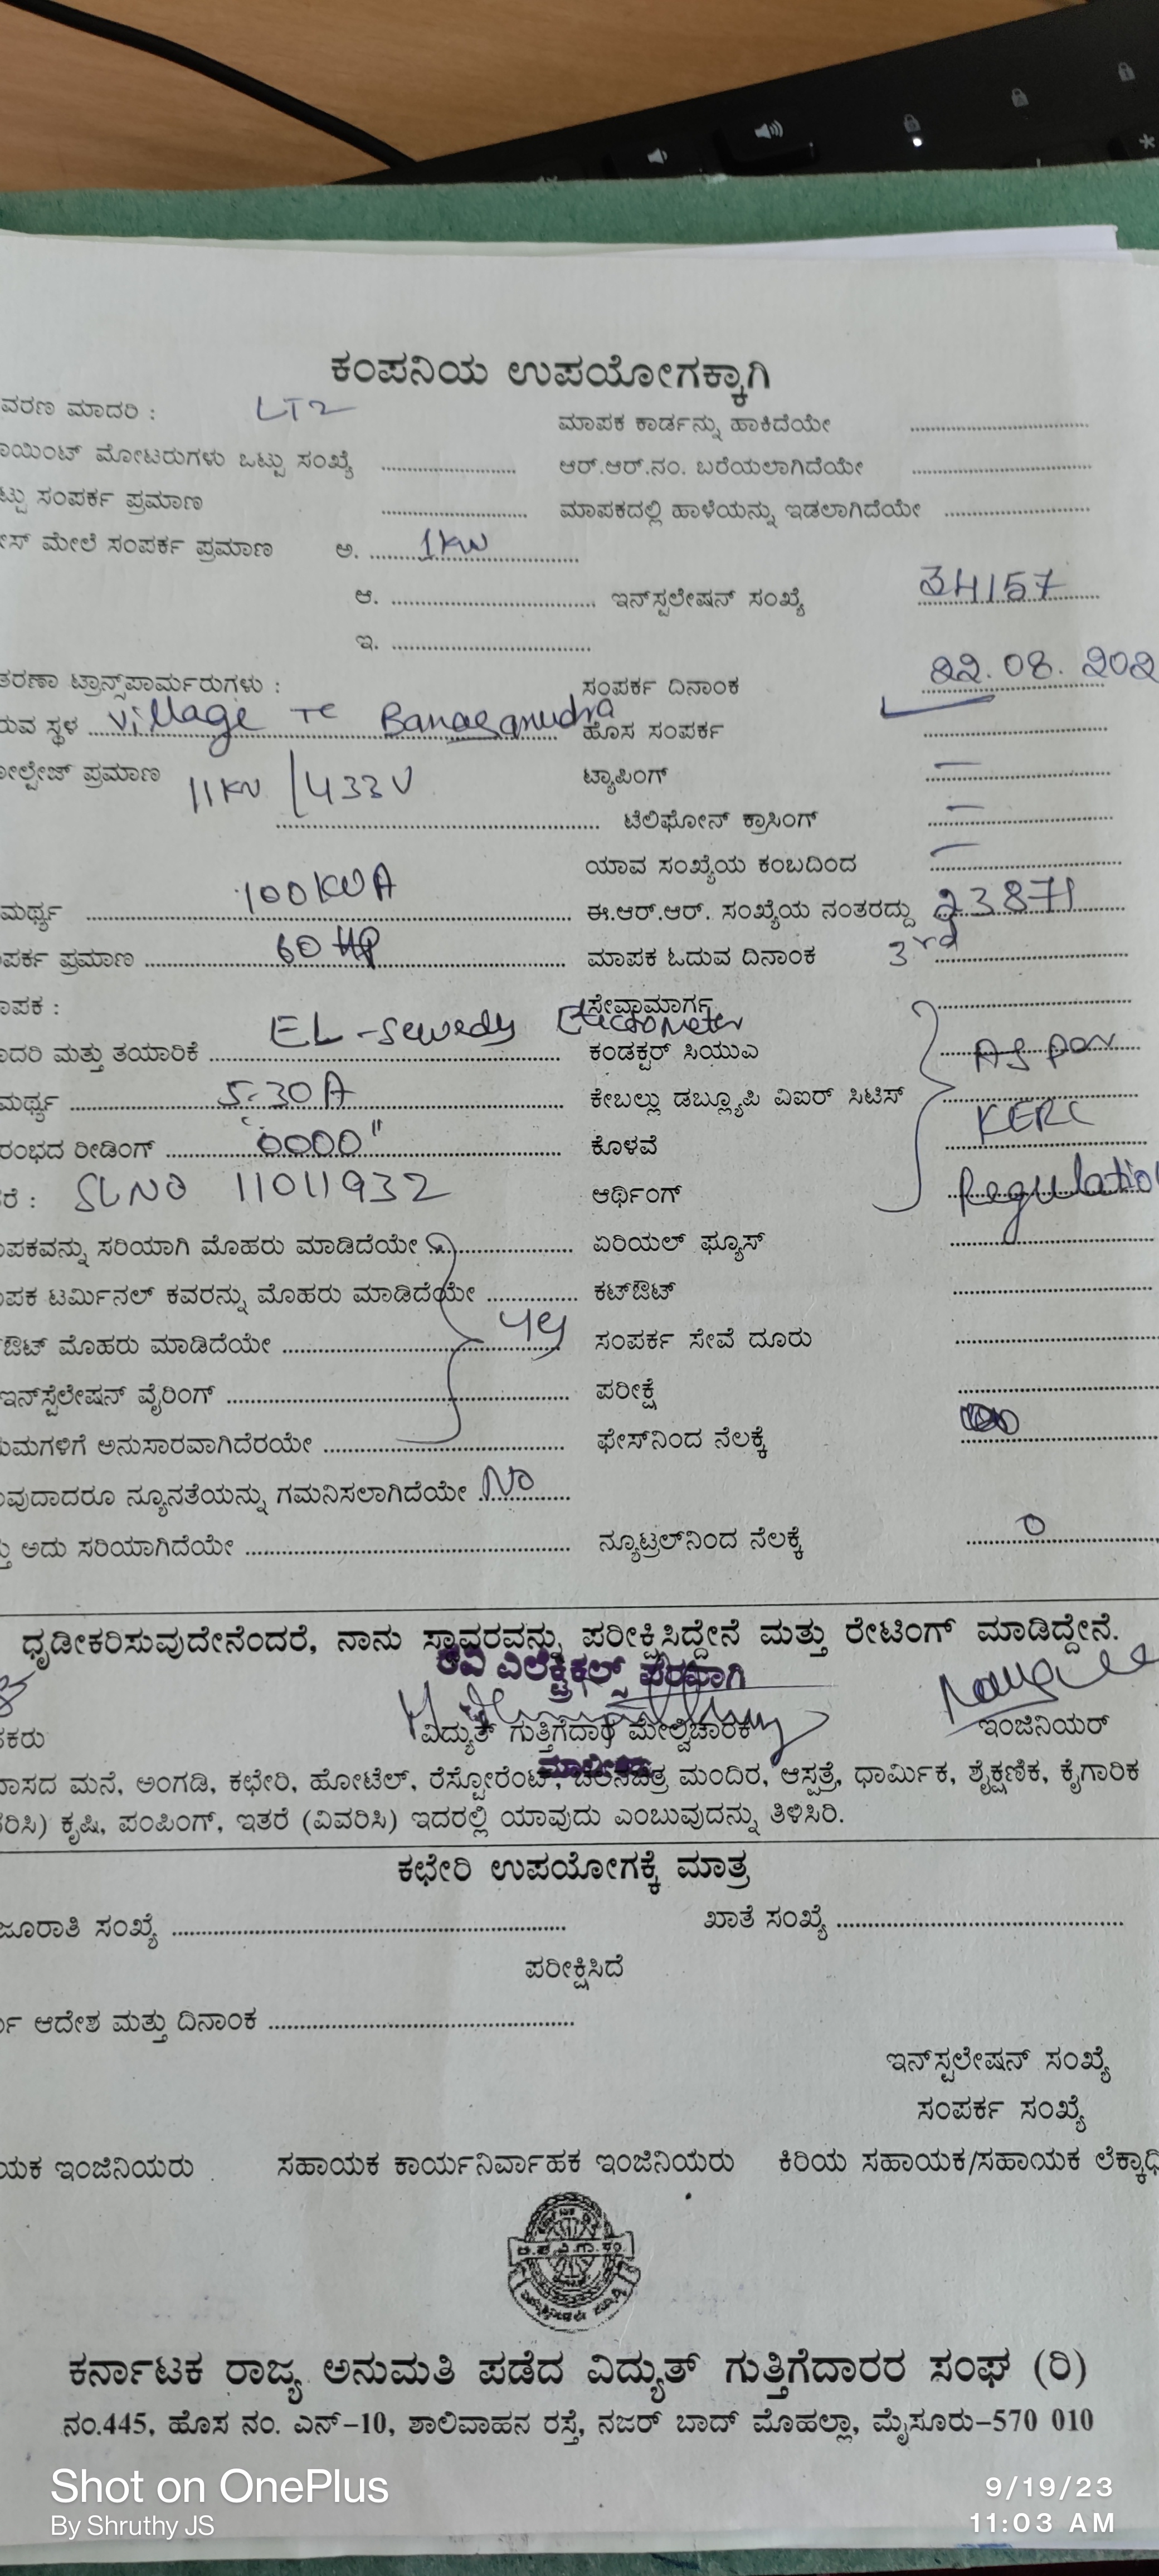 ಕಂಪನಿಯ ಉಪಯೋಗಕ್ಕಾಗಿ
ವರಣ ಮಾದರಿ : LT2
ಮಾಪಕ ಕಾರ್ಡನ್ನು ಹಾಕಿದೆಯೇ ....................
ಾಯಿಂಟ್ ಮೋಟರುಗಳು ಒಟ್ಟು ಸಂಖ್ಯೆ ....................
ಆರ್.ಆರ್.ನಂ. ಬರೆಯಲಾಗಿದೆಯೇ ....................
ಟ್ಟು ಸಂಪರ್ಕ ಪ್ರಮಾಣ ....................
ಮಾಪಕದಲ್ಲಿ ಹಾಳೆಯನ್ನು ಇಡಲಾಗಿದೆಯೇ ....................
ೇಸ್ ಮೇಲೆ ಸಂಪರ್ಕ ಪ್ರಮಾಣ ಅ. 1KW
ಆ. .................... ಇನ್‌ಸ್ಟಲೇಷನ್ ಸಂಖ್ಯೆ 34157
ಇ. ....................
ತರಣಾ ಟ್ರಾನ್ಸ್‌ಪಾರ್ಮರುಗಳು :
ಸಂಪರ್ಕ ದಿನಾಂಕ 22.08.202
ರುವ ಸ್ಥಳ Village TC Banasamudra
ಹೊಸ ಸಂಪರ್ಕ ....................
ೋಲ್ಟೇಜ್ ಪ್ರಮಾಣ 11KV / 433V
ಟ್ಯಾಪಿಂಗ್ —
ಟೆಲಿಫೋನ್ ಕ್ರಾಸಿಂಗ್ —
ಯಾವ ಸಂಖ್ಯೆಯ ಕಂಬದಿಂದ —
ಮರ್ಥ್ಯ 100KVA
ಈ.ಆರ್.ಆರ್. ಸಂಖ್ಯೆಯ ನಂತರದ್ದು 23871
ಪರ್ಕ ಪ್ರಮಾಣ 60 HP
ಮಾಪಕ ಓದುವ ದಿನಾಂಕ 3rd
ಾಪಕ :
ಸೇವಾಮಾರ್ಗ ....................
ಾದರಿ ಮತ್ತು ತಯಾರಿಕೆ EL-sewedy Electrometer
ಕಂಡಕ್ಟರ್ ಸಿಯುಎ As per
ಮರ್ಥ್ಯ 5-30A
ಕೇಬಲ್ಲು ಡಬ್ಲ್ಯೂಪಿ ವಿಐಆರ್ ಸಿಟಿಸ್ KERC
ರಂಭದ ರೀಡಿಂಗ್ "0000"
ಕೊಳವೆ ....................
ರೆ : SL NO 11011932
ಆರ್ಥಿಂಗ್ Regulatio
ಾಪಕವನ್ನು ಸರಿಯಾಗಿ ಮೊಹರು ಮಾಡಿದೆಯೇ ....................
ಏರಿಯಲ್ ಫ್ಯೂಸ್ ....................
ಾಪಕ ಟರ್ಮಿನಲ್ ಕವರನ್ನು ಮೊಹರು ಮಾಡಿದೆಯೇ ....................
ಕಟ್‌ಔಟ್ ....................
ಔಟ್ ಮೊಹರು ಮಾಡಿದೆಯೇ ....................
ಸಂಪರ್ಕ ಸೇವೆ ದೂರು ....................
ಇನ್‌ಸ್ಟೆಲೇಷನ್ ವೈರಿಂಗ್ ....................
ಪರೀಕ್ಷೆ ....................
ಯಮಗಳಿಗೆ ಅನುಸಾರವಾಗಿದೆರಯೇ ....................
ಫೇಸ್‌ನಿಂದ ನೆಲಕ್ಕೆ ....................
ಾವುದಾದರೂ ನ್ಯೂನತೆಯನ್ನು ಗಮನಿಸಲಾಗಿದೆಯೇ No
ತು ಅದು ಸರಿಯಾಗಿದೆಯೇ ....................
ನ್ಯೂಟ್ರಲ್‌ನಿಂದ ನೆಲಕ್ಕೆ 0
ಧೃಡೀಕರಿಸುವುದೇನೆಂದರೆ, ನಾನು ಸ್ಥಾವರವನ್ನು ಪರೀಕ್ಷಿಸಿದ್ದೇನೆ ಮತ್ತು ರೇಟಿಂಗ್ ಮಾಡಿದ್ದೇನೆ.
ರವಿ ಎಲೆಕ್ಟ್ರಿಕಲ್ಸ್ ಪರವಾಗಿ
ಕರು ವಿದ್ಯುತ್ ಗುತ್ತಿಗೆದಾರ ಮೇಲ್ವಿಚಾರಕ ಇಂಜಿನಿಯರ್
ಮಾಲೀಕರು
ವಾಸದ ಮನೆ, ಅಂಗಡಿ, ಕಛೇರಿ, ಹೋಟೆಲ್, ರೆಸ್ಟೋರೆಂಟ್, ಚಲನಚಿತ್ರ ಮಂದಿರ, ಆಸ್ಪತ್ರೆ, ಧಾರ್ಮಿಕ, ಶೈಕ್ಷಣಿಕ, ಕೈಗಾರಿಕ
ರಿಸಿ) ಕೃಷಿ, ಪಂಪಿಂಗ್, ಇತರೆ (ವಿವರಿಸಿ) ಇದರಲ್ಲಿ ಯಾವುದು ಎಂಬುವುದನ್ನು ತಿಳಿಸಿರಿ.
ಕಛೇರಿ ಉಪಯೋಗಕ್ಕೆ ಮಾತ್ರ
ಜೂರಾತಿ ಸಂಖ್ಯೆ .................... ಖಾತೆ ಸಂಖ್ಯೆ ....................
ಪರೀಕ್ಷಿಸಿದೆ
ರ್ಯ ಆದೇಶ ಮತ್ತು ದಿನಾಂಕ ....................
ಇನ್‌ಸ್ಟಲೇಷನ್ ಸಂಖ್ಯೆ
ಸಂಪರ್ಕ ಸಂಖ್ಯೆ
ಯಕ ಇಂಜಿನಿಯರು ಸಹಾಯಕ ಕಾರ್ಯನಿರ್ವಾಹಕ ಇಂಜಿನಿಯರು ಕಿರಿಯ ಸಹಾಯಕ/ಸಹಾಯಕ ಲೆಕ್ಕಾಧಿ
ಕರ್ನಾಟಕ ರಾಜ್ಯ ಅನುಮತಿ ಪಡೆದ ವಿದ್ಯುತ್ ಗುತ್ತಿಗೆದಾರರ ಸಂಘ (ರಿ)
ನಂ.445, ಹೊಸ ನಂ. ಎನ್-10, ಶಾಲಿವಾಹನ ರಸ್ತೆ, ನಜರ್ ಬಾದ್ ಮೊಹಲ್ಲಾ, ಮೈಸೂರು-570 010
Shot on OnePlus
By Shruthy JS
9/19/23
11:03 AM